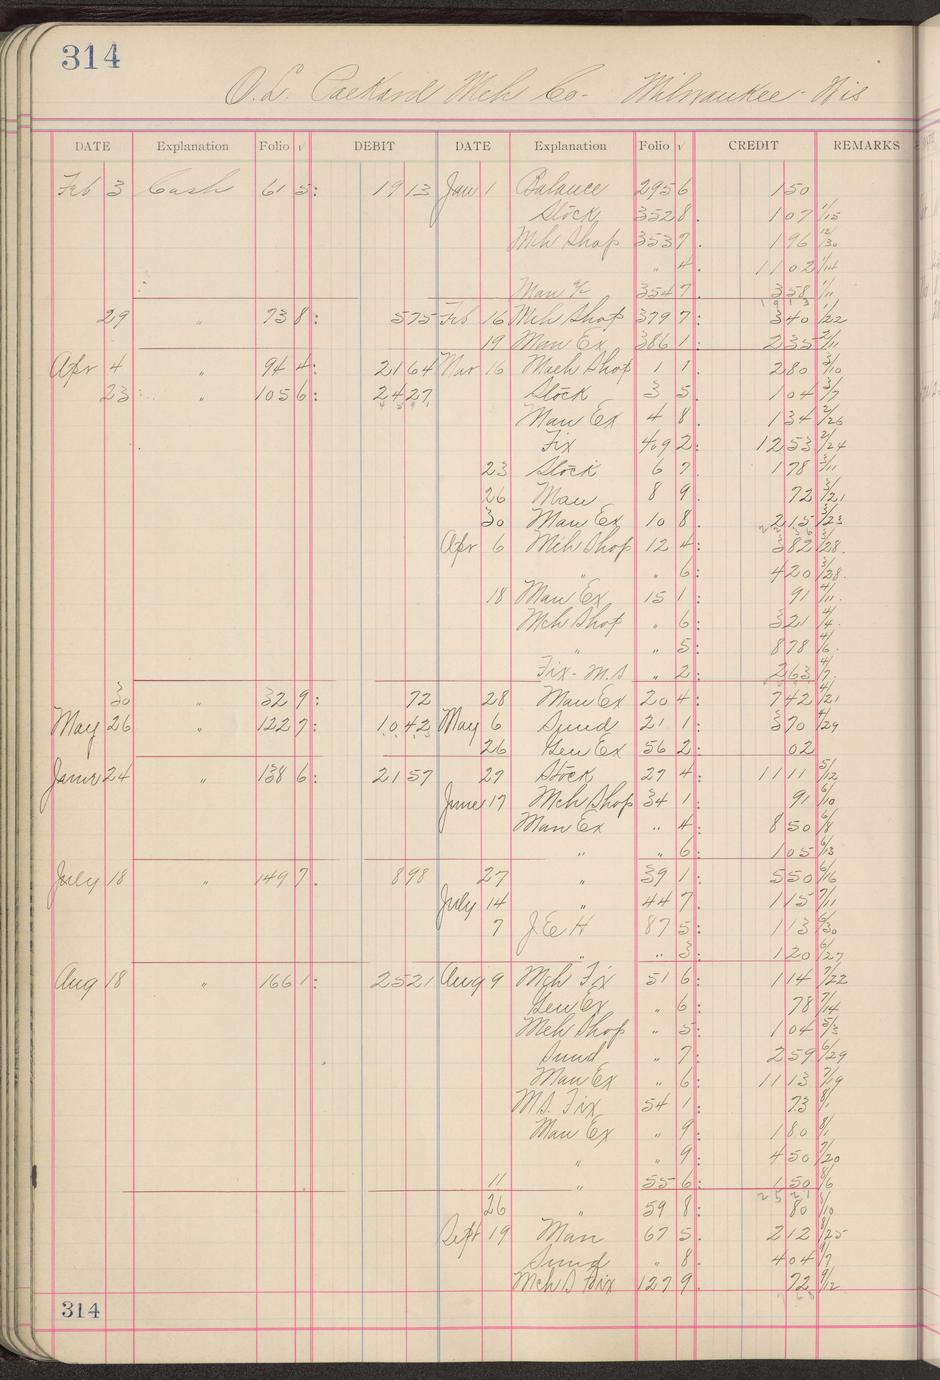 314
O.L. Packard Mch Co- Milwaukee- Wis
DATE Explanation Folio √ DEBIT DATE Explanation Folio √ CREDIT REMARKS
Feb 3 Cash 61 5: 19 13 Jan 1 Balance 295 6 1 50
Stock 352 8. 1 07 1/15
Mch Shop 353 7. 1 96 12/30
" 4. 11 02 1/14
Man Ex 354 7. 3 58 1/11
29 " 73 8: 5 75 Feb 16 Mch Shop 379 7: 3 40 1/22
19 Man Ex 386 1. 2 35 2/11
Apr 4 " 94 4: 21 64 Mar 16 Mach Shop 1 1. 2 80 3/10
23 " 105 6: 24 27 Stock 3 5. 1 04 3/7
Man Ex 4 8. 1 34 2/26
Fix 409 2: 12 53 2/24
23 Stock 6 7. 1 78 3/11
26 Man 8 9. 72 3/21
30 Man Ex 10 8. 2 15 3/23
Apr 6 Mch Shop 12 4: 3 82 3/28.
" " 6: 4 20 3/28.
18 Man Ex 15 1: 91 4/11.
Mch Shop " 6: 3 21 4/4.
" " 5: 8 78 4/6.
Fix- M.S " 2: 2 63 4/7.
30 " 32 9: 72 28 Man Ex 20 4: 7 42 4/21
May 26 " 122 7: 10 42 May 6 Sund 21 1: 3 70 4/29
26 Gen Ex 56 2: 02
June 24 " 138 6: 21 57 27 Stock 27 4: 11 11 5/12
June 17 Mch Shop 34 1: 91 6/10
Man Ex " 4: 8 50 6/8
" " 6: 1 05 6/13
July 18 " 149 7. 8 98 27 " 39 1: 5 50 6/16
July 14 " 44 7. 1 15 7/11
7 J.E.H 87 5: 1 13 6/30
" " 3: 1 20 6/27
Aug 18 " 166 1: 25 21 Aug 9 Mch Fix 51 6: 1 14 7/22
Gen Ex " 6: 78 7/14
Mch Shop " 5: 1 04 5/3
Sund " 7: 2 59 6/29
Man Ex " 6: 11 13 7/19
M.S. Fix 54 1: 73 8/1
Man Ex " 9: 1 80 8/1
" " 9: 4 50 7/20
11 " 55 6: 1 50 8/6
25 21
26 " 59 8: 80 8/10
Sept 19 Man 67 5. 2 12 8/25
Sund " 8. 4 04 9/7
Mch S Fix 127 9. 72 9/12
7 68
314